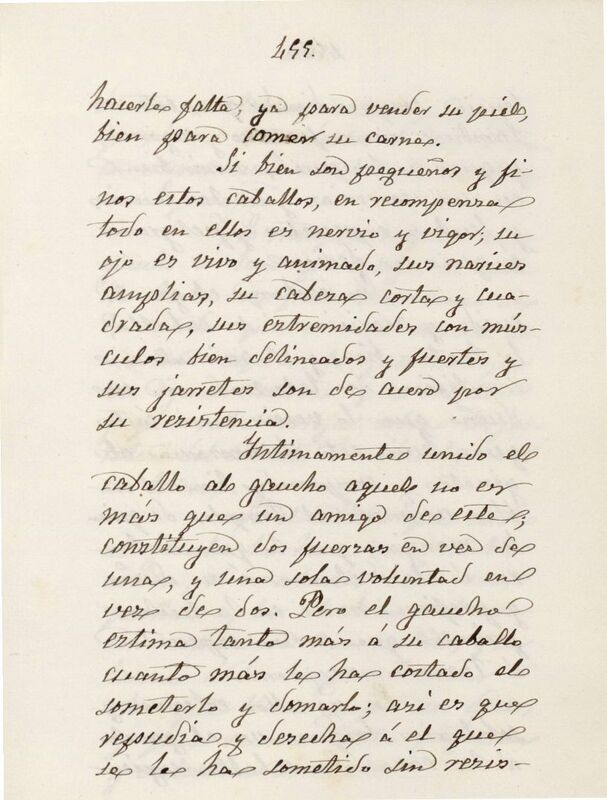 455.
hacerle falta, ya para vender su piel,
bien para comer su carne.
Si bien son pequeños y fi-
nos estos caballos, en recompenza
todo en ellos es nervio y vigor; su
ojo es vivo y animado, sus narices
amplias, su cabeza corta y cua-
drada, sus estremidades con mús-
culos bien delineados y fuertes y
sus jarretes son de acero por
su resistencia.
Intimamente unido el
caballo al gaucho aquel no es
más que un amigo de este;
constituyen dos fuerzas en vez de
una, y una sola voluntad en
vez de dos. Pero el gaucho
estima tanto más á su caballo
cuanto más le ha costado el
someterlo y domarlo; asi es que
repudia y desecha á el que
se le ha sometido sin resis-